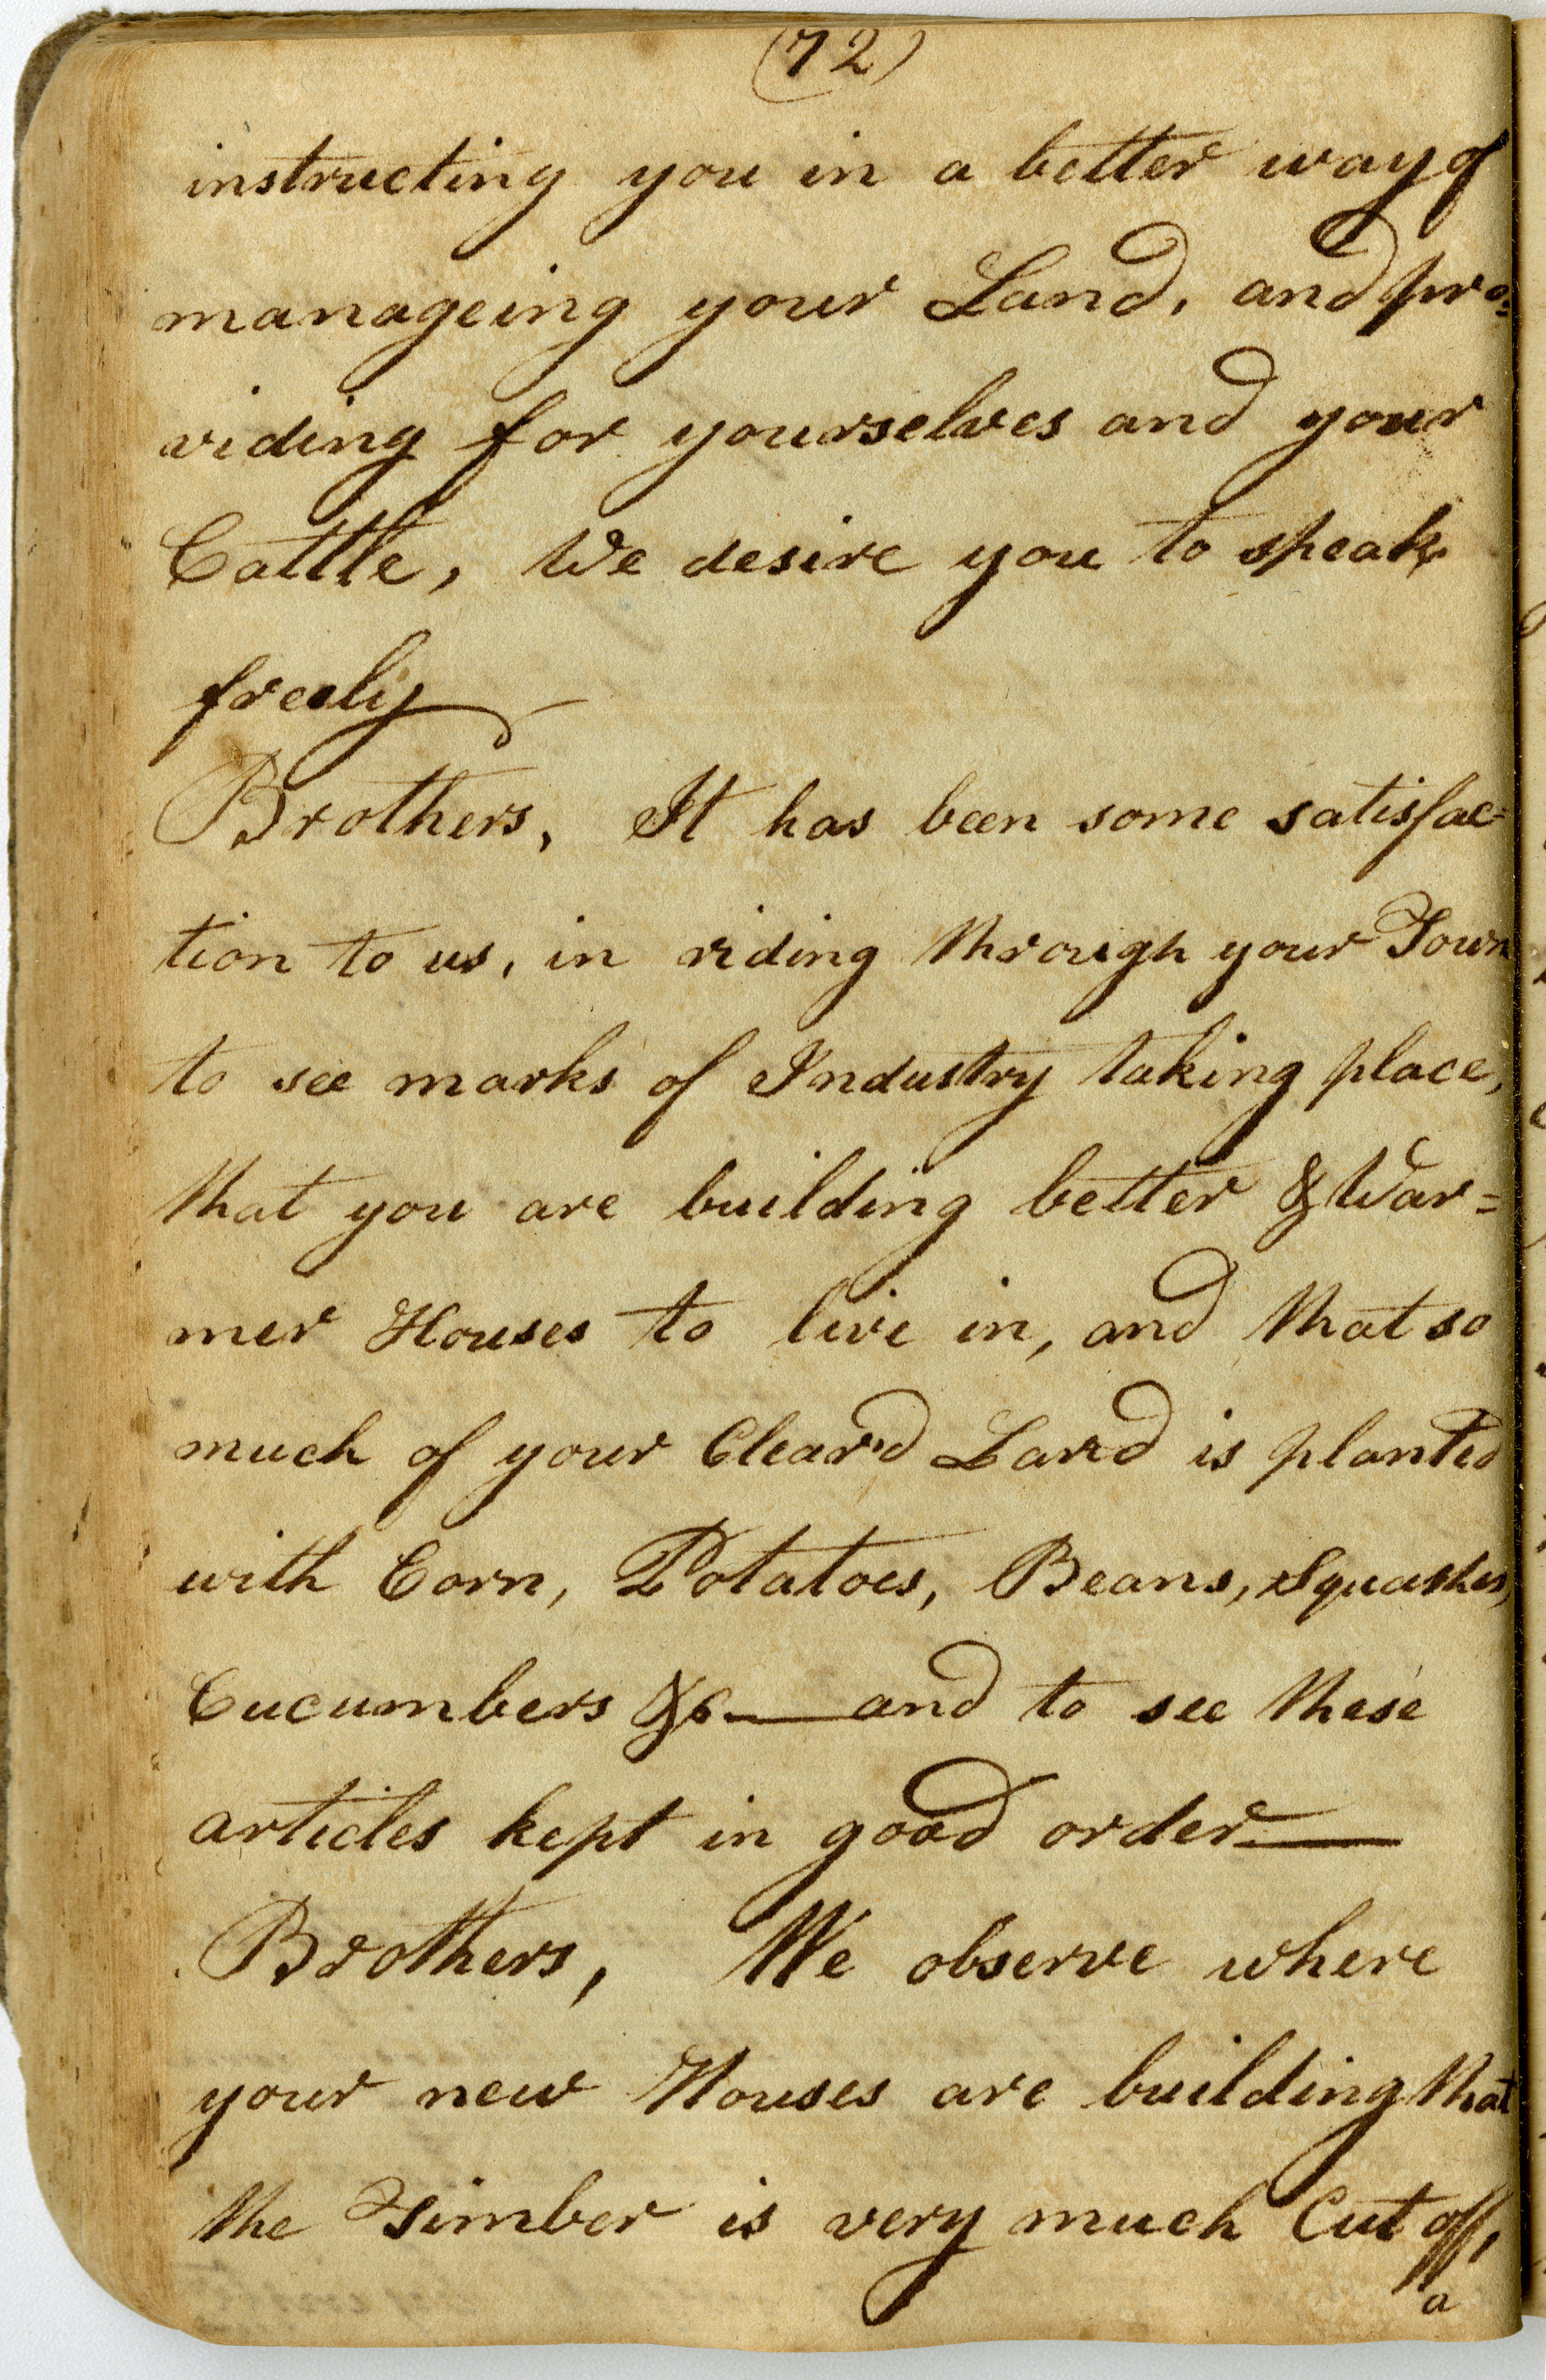 (72)
instructing you in a better way of
manageing your Land, and pro=
viding for yourselves and your
Cattle, We desire you to speak
freely
Brothers, It has been some satisfac=
tion to us, in riding through your Town
to see marks of Industry taking place,
that you are building better & War=
mer Houses to live in, and that so
much of your Clear'd Land is planted
with Corn, Potatoes, Beans, Squashes,
Cucumbers &c — and to see these
articles kept in good order —
Brothers, We observe where
your new Houses are building that
the Timber is very much Cut off,
a